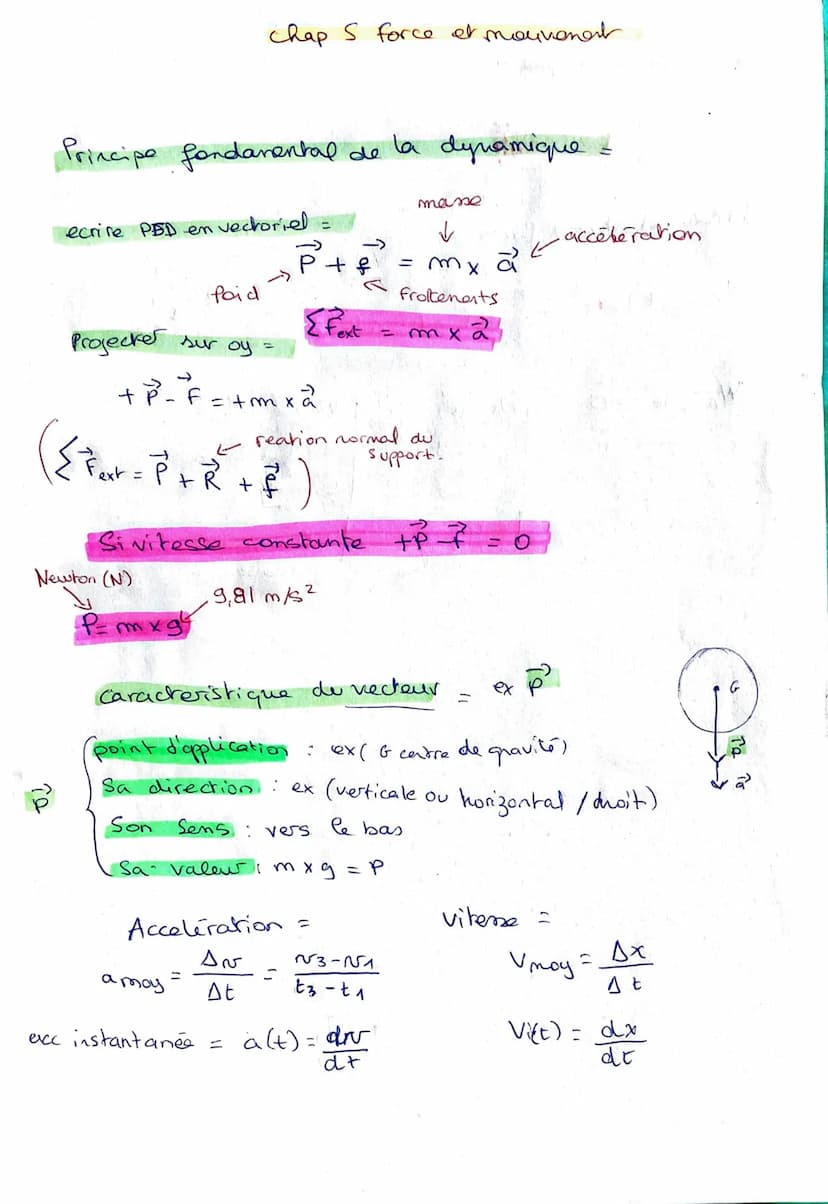 Chap 5 force et mouvement
Principe fondamental de la dynamique =
masse
ecrire PFD en vectoriel =
P⃗ + f⃗ = m x a⃗
accélération
poid
frottements
Projecter sur oy =
Σ F⃗ext = m x a⃗
+ P⃗ - F⃗ = + m x a⃗
reation normal du support.
(Σ F⃗ext = P⃗ + R⃗ + f⃗)
Si vitesse constante +P⃗ - f⃗ = 0
Newton (N)
9,81 m/s²
P = m x g
caracteristique du vecteur = ex P⃗
G
point d'application : ex ( G centre de gravité)
P⃗
Sa direction : ex (verticale ou horizontal / droit)
a⃗
P⃗
Son Sens : vers le bas
Sa valeur : m x g = P
Acceleration =
vitesse =
a moy = Δv/Δt = v3-v1/t3-t1
Vmoy = Δx/Δt
acc instantanée = a(t) = dv/dt
Vi(t) = dx/dt